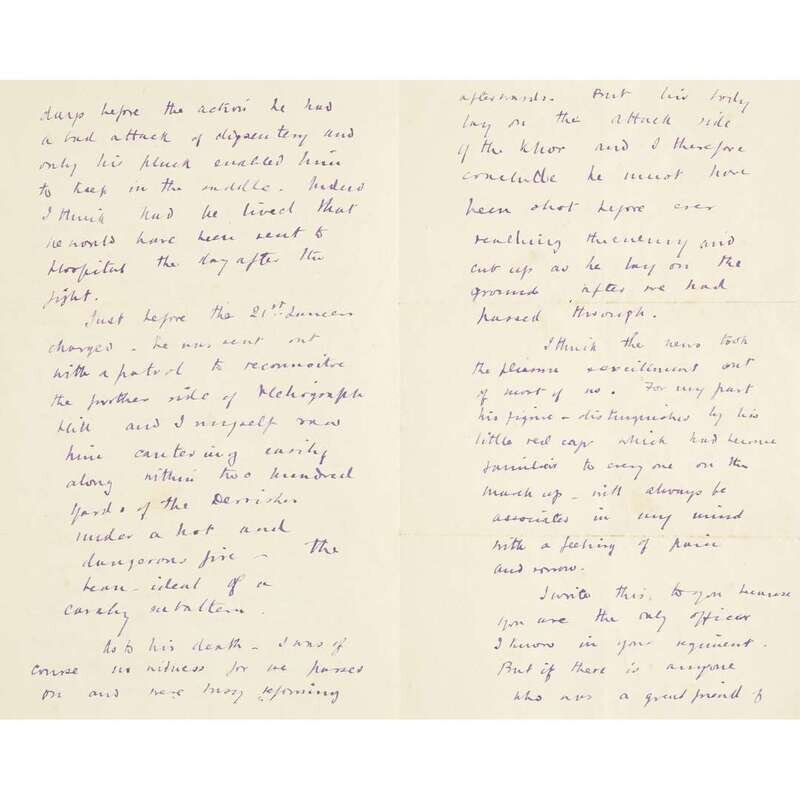 days before the action he had
a bad attack of dysentery and
only his pluck enabled him
to keep in the saddle. Indeed
I think had he lived that
he would have been sent to
Hospital the day after the
fight.
Just before the 21st Lancers
charged - he was sent out
with a patrol to reconnoitre
the further side of Heliograph
Hill and I myself saw
him cantering easily
along within two hundred
yards of the Dervishes
under a hot and
dangerous fire - the
beau-ideal of a
cavalry subaltern.
As to his death - I was of
course no witness for we passed
on and were busy reforming
afterwards. But his body
lay on the attack side
of the Khor and I therefore
conclude he must have
been shot before ever
reaching the enemy and
cut up as he lay on the
ground after we had
passed through.
I think the news took
the pleasure & excitement out
of most of us. For my part
his figure - distinguished by his
little red cap which had become
familiar to every one on the
march up - will always be
associated in my mind
with a feeling of pain
and sorrow.
I write this, to you because
you are the only officer
I know in your regiment.
But if there is anyone
who was a great friend of